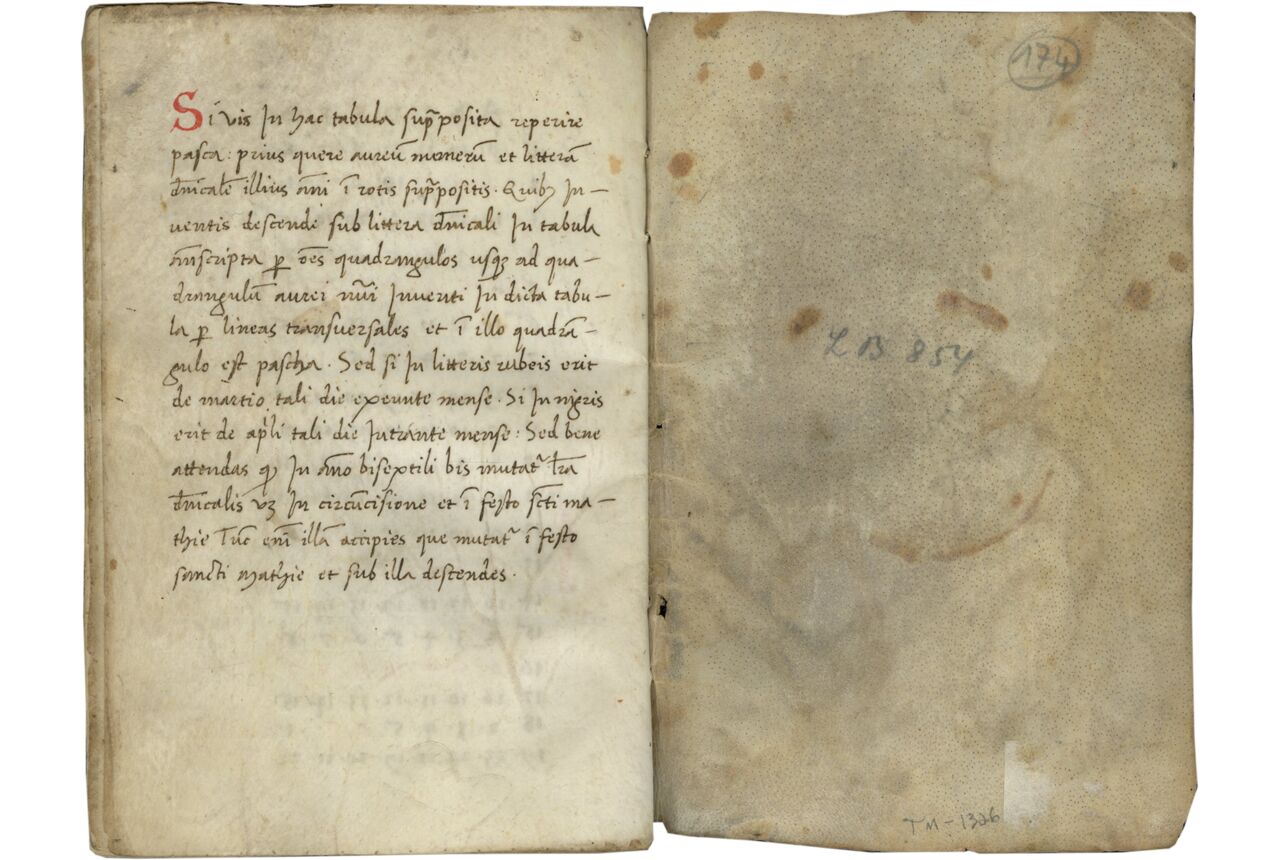 Si vis In hac tabula sup̄posita reperire
pasca: prius quere aureū numerū et litterā
dn̄icalē illius āni ī rotis sup̄positis. Quibꝫ In-
ventis descende sub littera dn̄icali In tabula
āmscripta ꝑ oēs quadrangulos usqꝫ ad qua-
drangulū aurei nūi Inventi In̄ dicta tabu-
la ꝑ lineas transversales et ī illo quadrā-
gulo est pascha. Sed si In litteris rubeis erit
de martio tali die exeunte mense. Si In nigris
erit de ap̄li tali die Intrante mense: Sed bene
attendas ꝙ In āno bisextili bis mutat᷑ l̄ra
dn̄icalis vꝫ In circūcisione et ī festo sc̄ti ma-
thie Tūc eni᷑ illā accipies que mutat᷑ ī festo
sancti Mathie et sub illa descendes.
174
LB 854
TM-1326